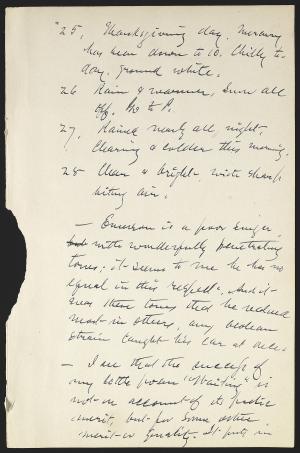 "25, Thanksgiving day. Mercury
has been down to 10. Chilly to-
day. ground white.
26 Rain & warmer, Snow all
off. to P.
27, Rained nearly all night.
Clearing & colder this morning.
28 Clear & bright, with sharp
biting air.
— Emerson is a poor singer,
but with wonderfully penetrating
tones; it seems to me he has no
equal in this respect. And it
was these tones that he valued
most in others, any aeolian
strain caught his ear at once.
— I see that the success of
my little poem "Waiting" is
not on account of its poetic
merit, but for some other
merit or quality. It puts in